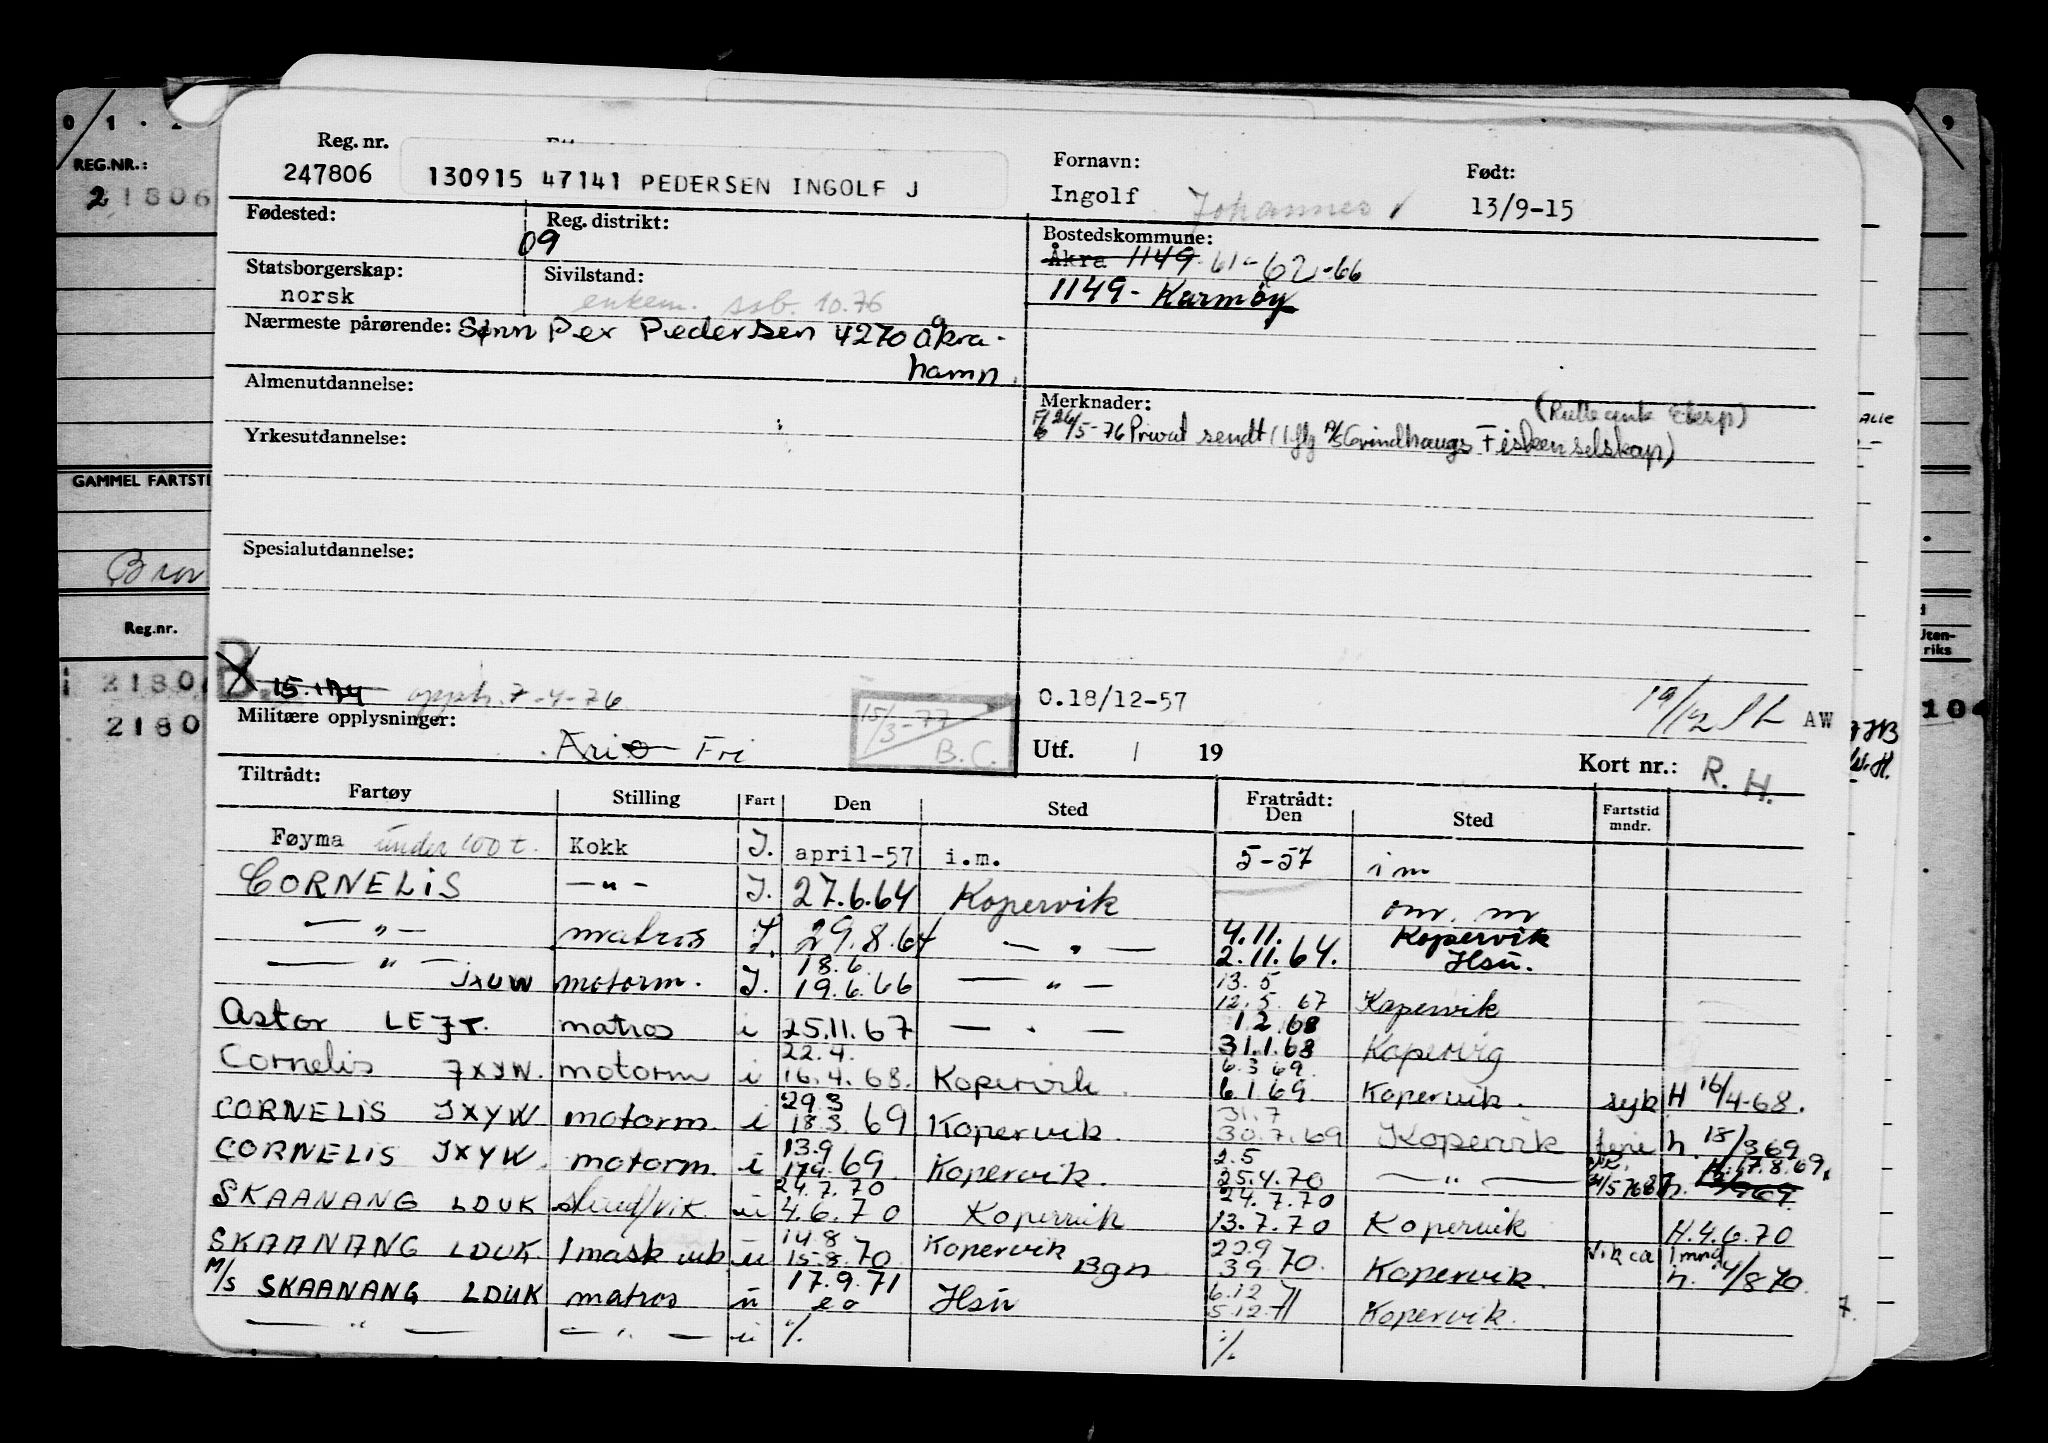 Reg. nr. Fornavn: Født:
247806 130915 47141 PEDERSEN INGOLF J Ingolf Johannes 13/9-15
Fødested: Reg. distrikt: Bostedskommune:
09 Åkra 1149 61-62-66
Statsborgerskap: Sivilstand: 1149 - Karmøy
norsk enkem. ssb. 10.76
Nærmeste pårørende: Sønn Per Pedersen 4270 Åkra-
hamn.
Almenutdannelse: Merknader:
F/6 26/5-76 Privat sendt A/S Fiskeriselskap)
Yrkesutdannelse:
Spesialutdannelse:
B. 15.1.74 opph. 7-4-76 O.18/12-57 19/12 AW
Militære opplysninger: 15/3-77 B.C.
Fri Utf. / 19 Kort nr.: R. H.
Tiltrådt: Fratrådt:
Fartøy Stilling Fart Den Sted Den Sted Fartstid mndr.
Føyma under 100 t. Kokk I. april-57 i.m. 5-57 i m
CORNELIS —"— I. 27.6.64 Kopervik om. m
—"— matros I. 29.8.64 —"— 4.11. 2.11.64. Kopervik Hsu.
—"— JXUW motorm. I. 18.6. 19.6.66 —"— 13.5 12.5.67 Kopervik
Astor LEJT. matros i 25.11.67 —"— 1.2.68 31.1.68 Kopervig
Cornelis JXYW. motorm i 22.4. 16.4.68. Kopervik 6.3 69. 6.1.69 Kopervik. syk H 16/4-68.
CORNELIS JXYW motorm. i 29.3 18.3. 69 Kopervik. 31.7 30.7.69 Kopervik ferie h. 18/3 69
CORNELIS JXYW. motorm. i 13.9 17.9. 69 Kopervik. 2.5 25.4.70 —"— h. 17.8.69.
SKAANANG LDUK u 24.7.70 4.6.70 Kopervik 24.7.70 13.7.70 Kopervik H.4.6.70
SKAANANG LDUK 1 mask vik u 14.8 15.8.70 Kopervik Bgn 22.9 3.9 70. Kopervik. vik ca 1 mnd h. 4/8 70.
M/S SKAANANG LDUK matros u 17.9.71 Hsu 6.12 5.12.71 Kopervik.
—"— —"— u ./. ./.
REG.NR.:
21806
GAMMEL FARTSTI
Reg.nr.
2180
2180